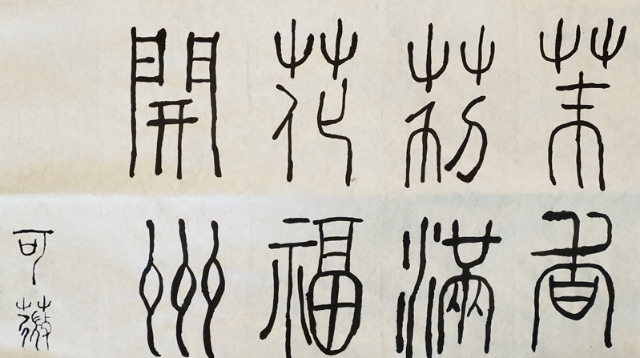 茉莉花開
香滿福州
可薇